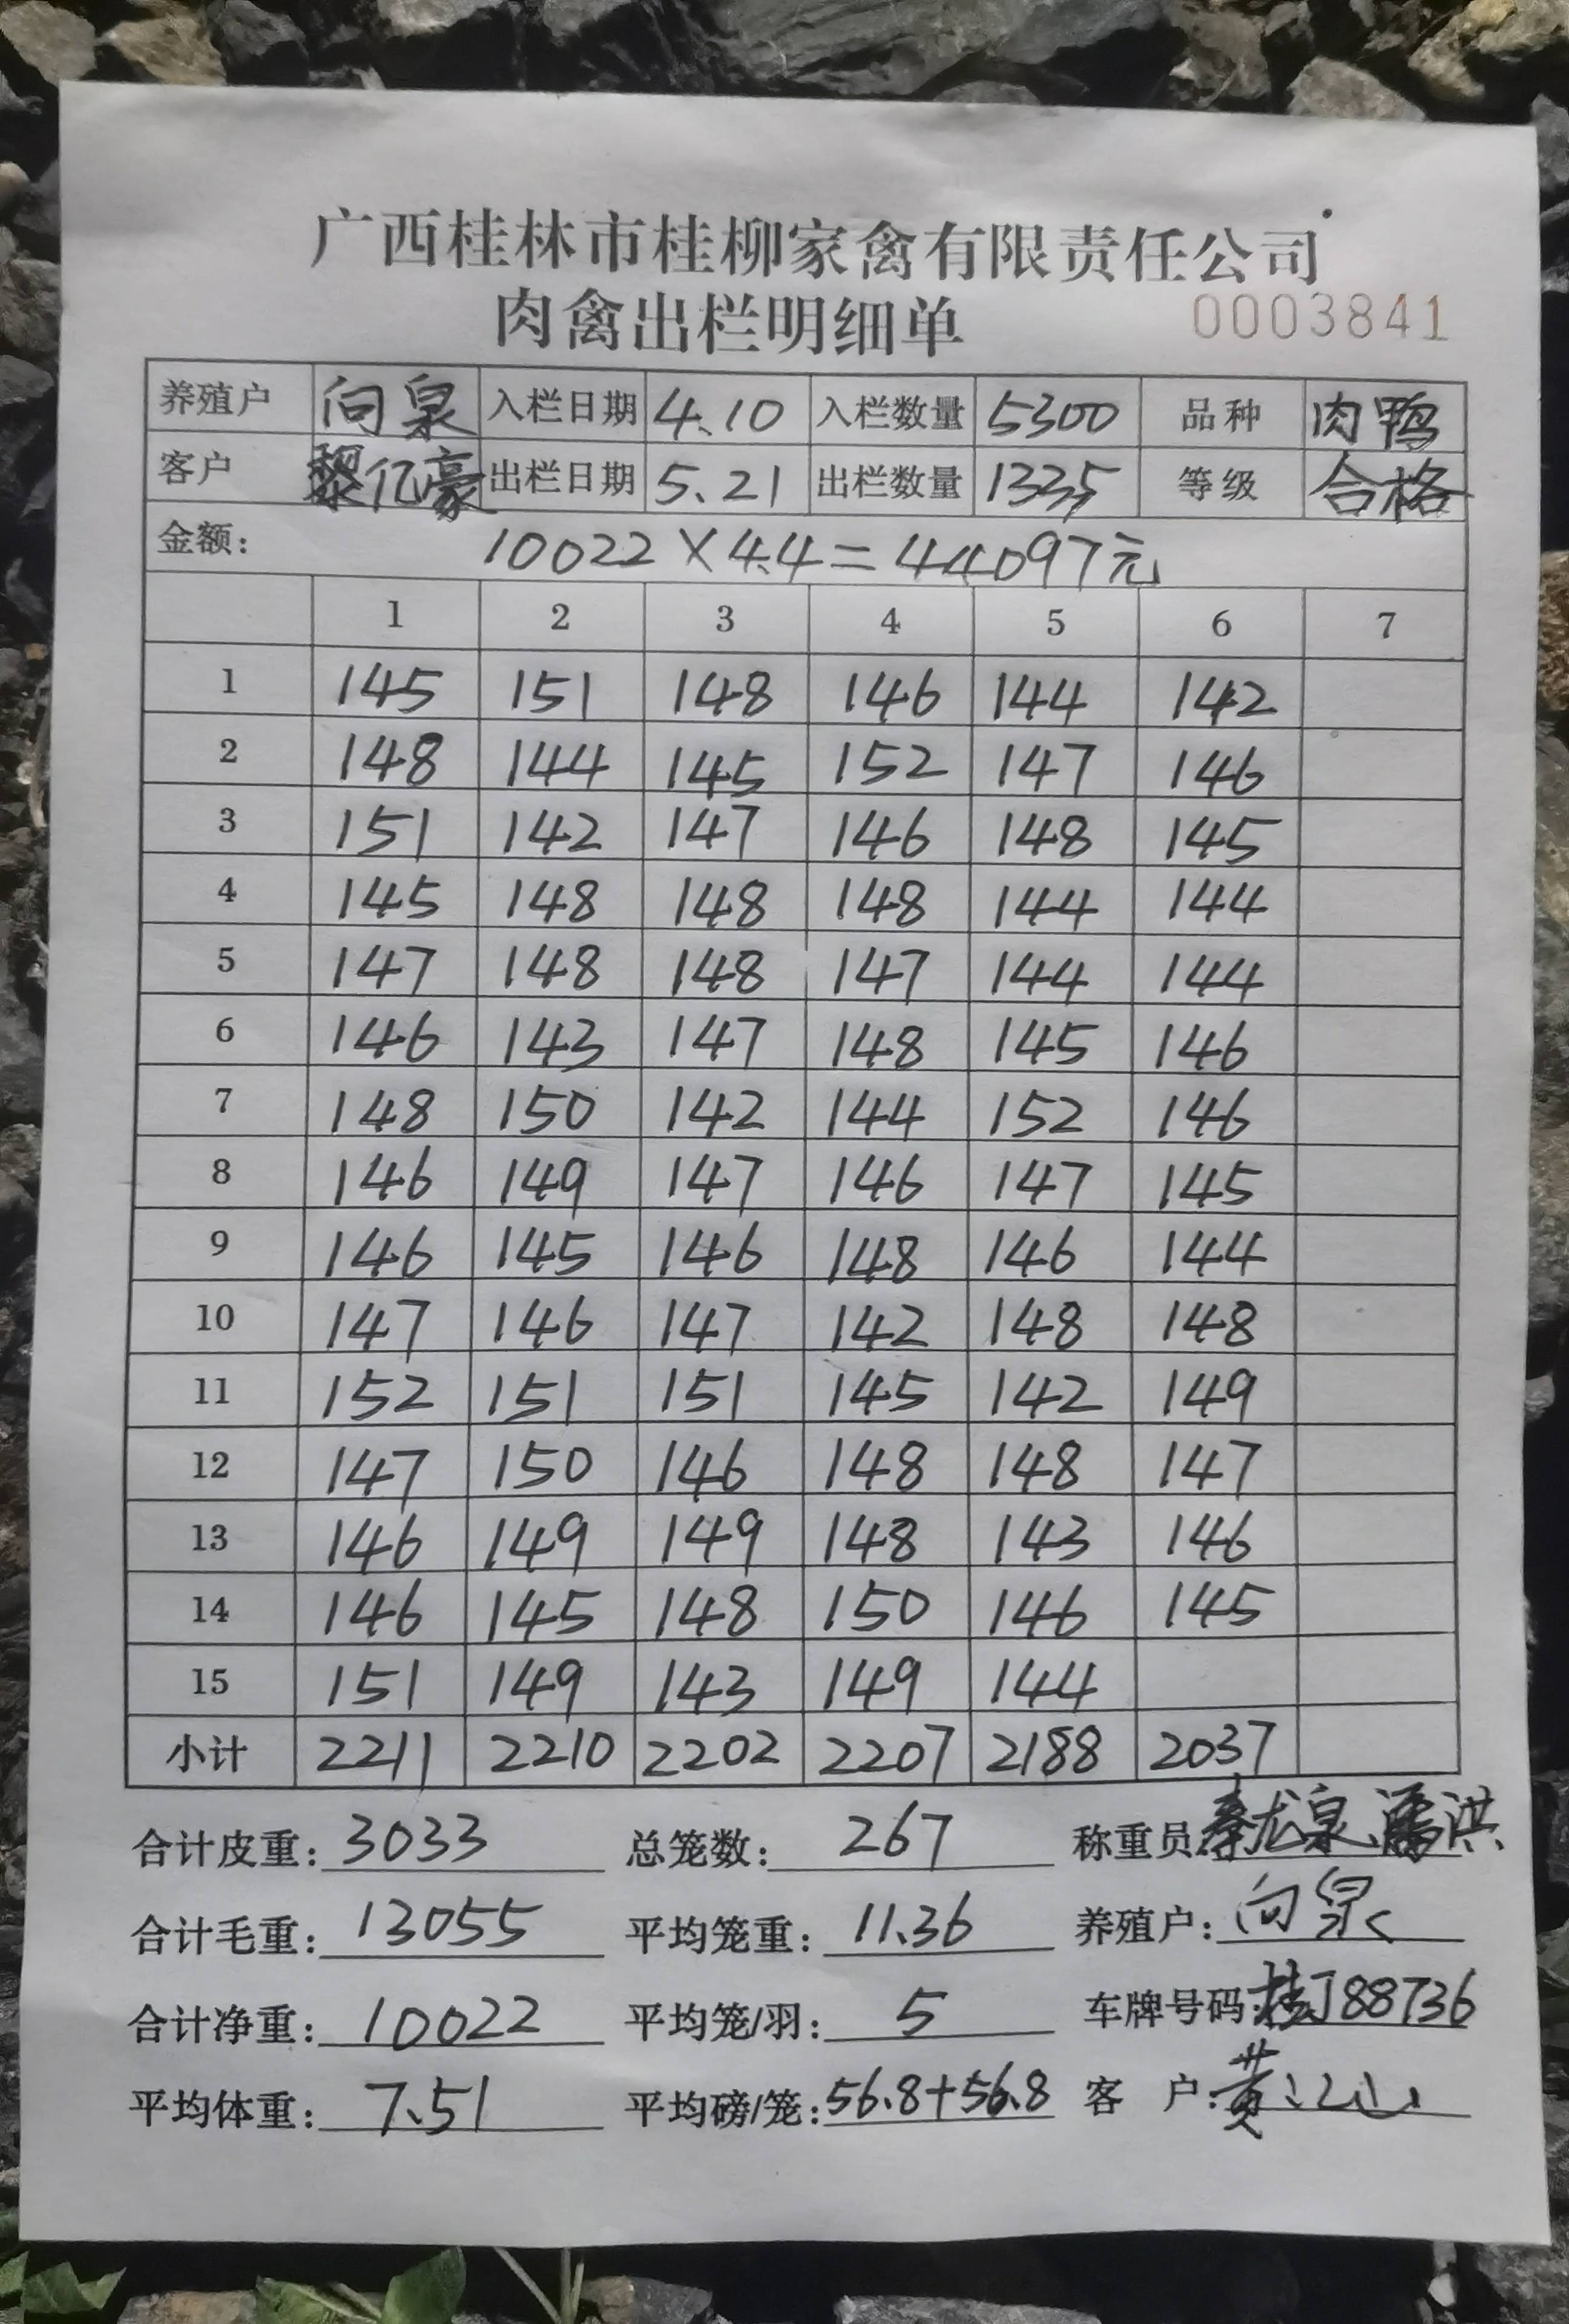 广西桂林市桂柳家禽有限责任公司
肉禽出栏明细单 0003841
养殖户 向泉 入栏日期 4.10 入栏数量 5300 品种 肉鸭
客户 黎亿豪 出栏日期 5.21 出栏数量 1335 等级 合格
金额: 10022×4.4=44097元
1 2 3 4 5 6 7
1 145 151 148 146 144 142
2 148 144 145 152 147 146
3 151 142 147 146 148 145
4 145 148 148 148 144 144
5 147 148 148 147 144 144
6 146 143 147 148 145 146
7 148 150 142 144 152 146
8 146 149 147 146 147 145
9 146 145 146 148 146 144
10 147 146 147 142 148 148
11 152 151 151 145 142 149
12 147 150 146 148 148 147
13 146 149 149 148 143 146
14 146 145 148 150 146 145
15 151 149 143 149 144
小计 2211 2210 2202 2207 2188 2037
合计皮重: 3033 总笼数: 267 称重员 秦龙泉、潘洪
合计毛重: 13055 平均笼重: 11.36 养殖户: 向泉
合计净重: 10022 平均笼/羽: 5 车牌号码: 桂J88736
平均体重: 7.51 平均磅/笼: 56.8+56.8 客户: 黄江山